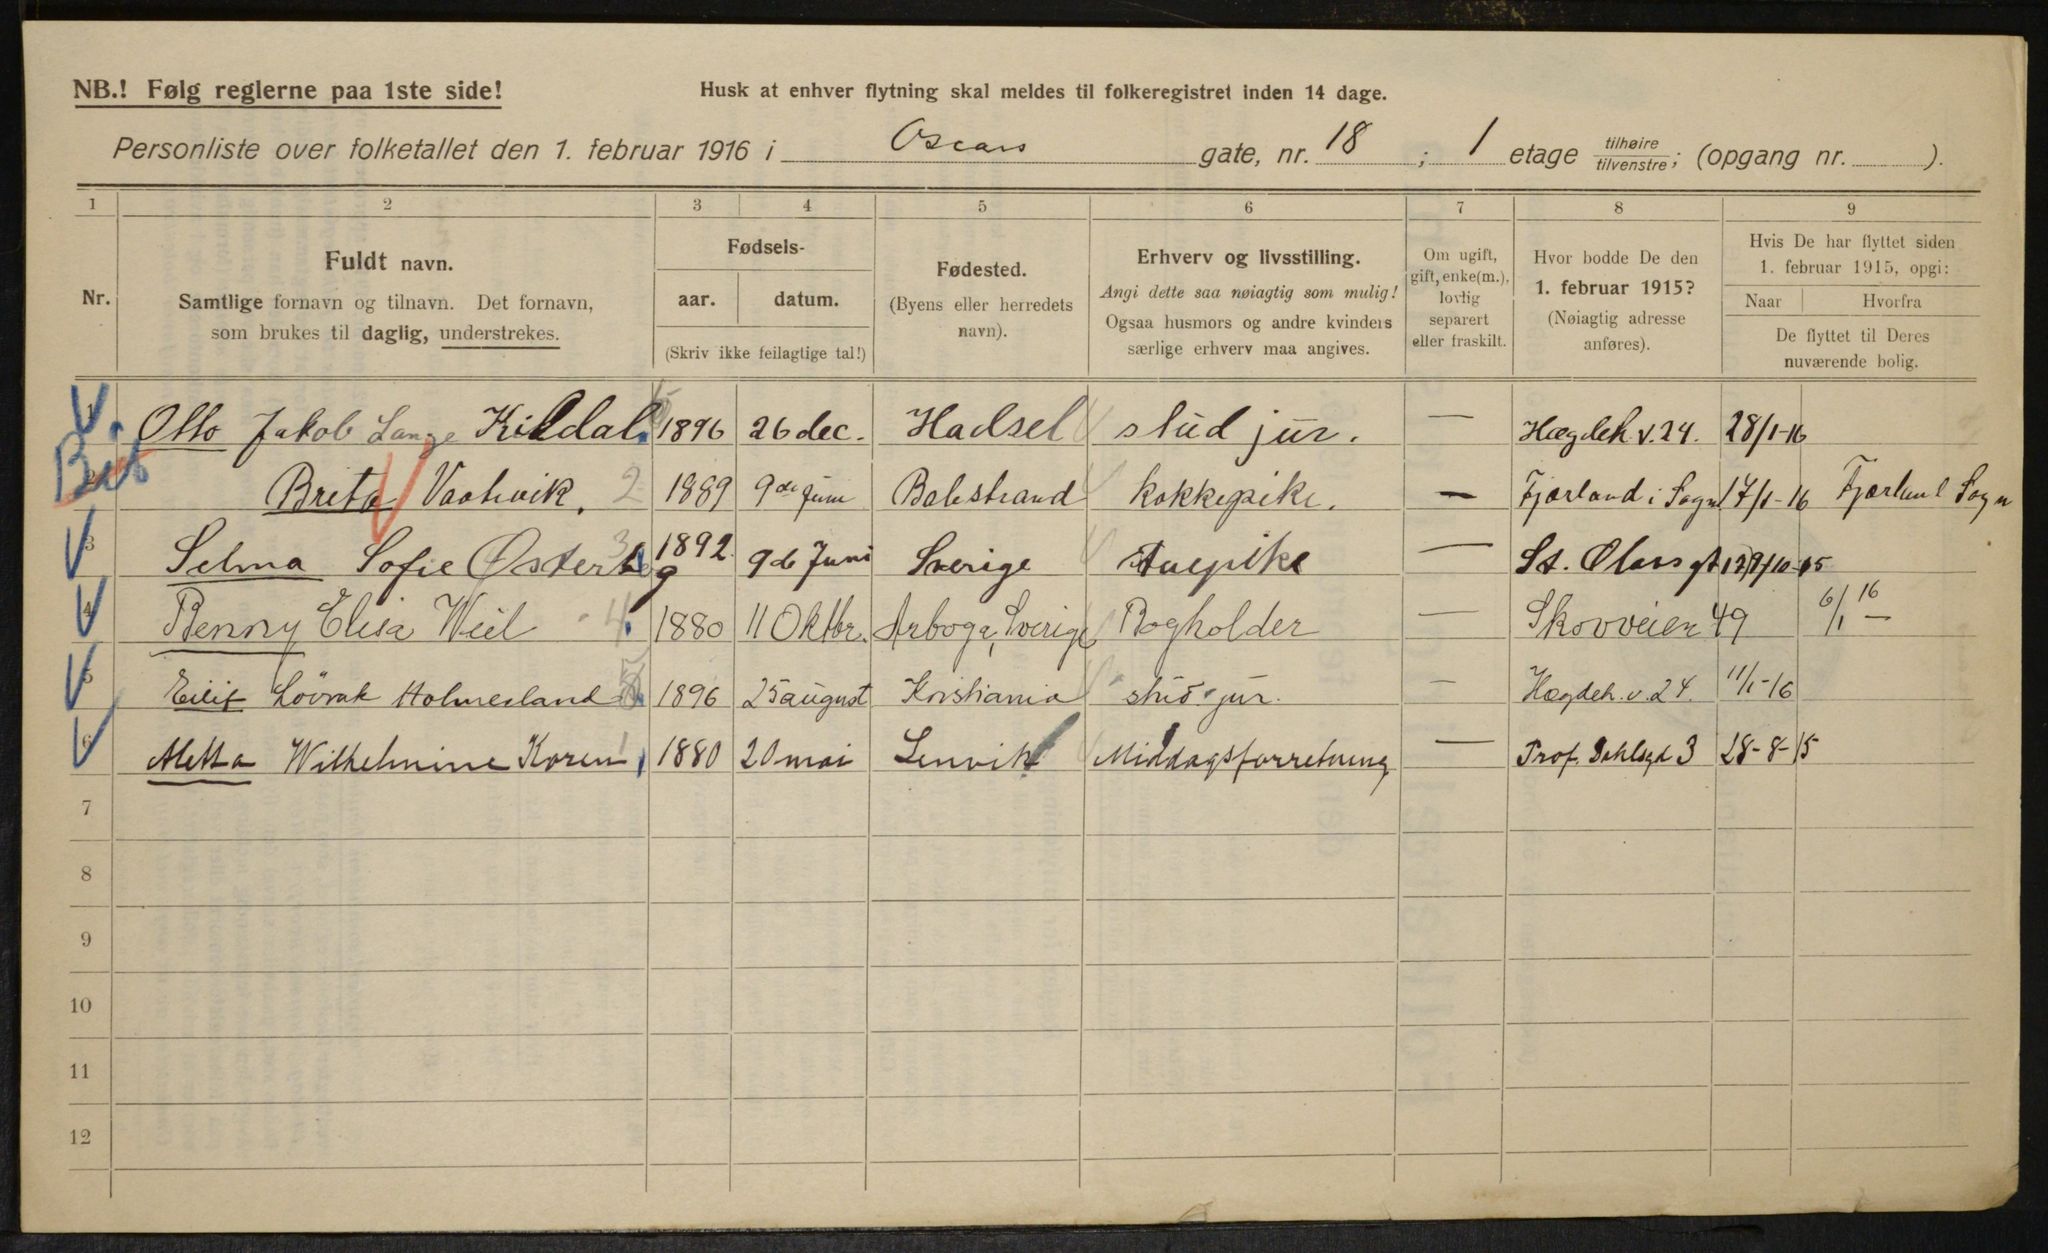 NB.! Følg reglerne paa 1ste side!
Husk at enhver flytning skal meldes til folkeregistret inden 14 dage.
Personliste over folketallet den 1. februar 1916 i Oscars gate, nr. 18 ; 1 etage tilhøire tilvenstre; (opgang nr. ).
1 2 3 4 5 6 7 8 9
Nr.
Fuldt navn.
Samtlige fornavn og tilnavn. Det fornavn,
som brukes til daglig, understrekes.
Fødsels-
aar. datum.
(Skriv ikke feilagtige tal!)
Fødested.
(Byens eller herredets
navn).
Erhverv og livsstilling.
Angi dette saa nøiagtig som mulig!
Ogsaa husmors og andre kvinders
særlige erhverv maa angives.
Om ugift,
gift, enke(m.),
lovlig
separert
eller fraskilt.
Hvor bodde De den
1. februar 1915?
(Nøiagtig adresse
anføres).
Hvis De har flyttet siden
1. februar 1915, opgi:
Naar Hvorfra
De flyttet til Deres
nuværende bolig.
1 Otto Jakob Lange Kildal 1896 26 dec. Hadsel stud jur. — Hægdeh. v. 24. 28/1-16
2 Brita 2 1889 9de Juni Balestrand kokkepike. — Fjærland i Sogn 17/1-16 Fjærland Sogn
3 Selma Sofie Østerberg 3 1892 9de Juni Sverige Stuepike — St. Olavsgt
4 Benny Elisa Weil 4 1880 11 Oktbr. Arboga, Sverige Bogholder — Skovveien 49 6/1 16 —
5 Eilif Lövrak Holmesland 1896 25 august Kristiania stud. jur. — Hægdeh. v. 24. 11/1-16
6 Aletta Wilhelmine Koren 1 1880 20 mai Lenvik Middagsforretning — Prof. Dahlsgd 3 28-8-15
7
8
9
10
11
12